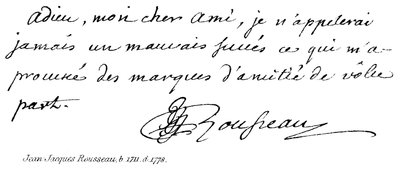 Adieu, mon cher Ami, je n'appelerai
jamais un mauvais succés ce qui m'a-
procuré des marques d'amitié de vôtre
part.
JJRousseau
Jean Jacques Rousseau, b. 1711. d. 1778.